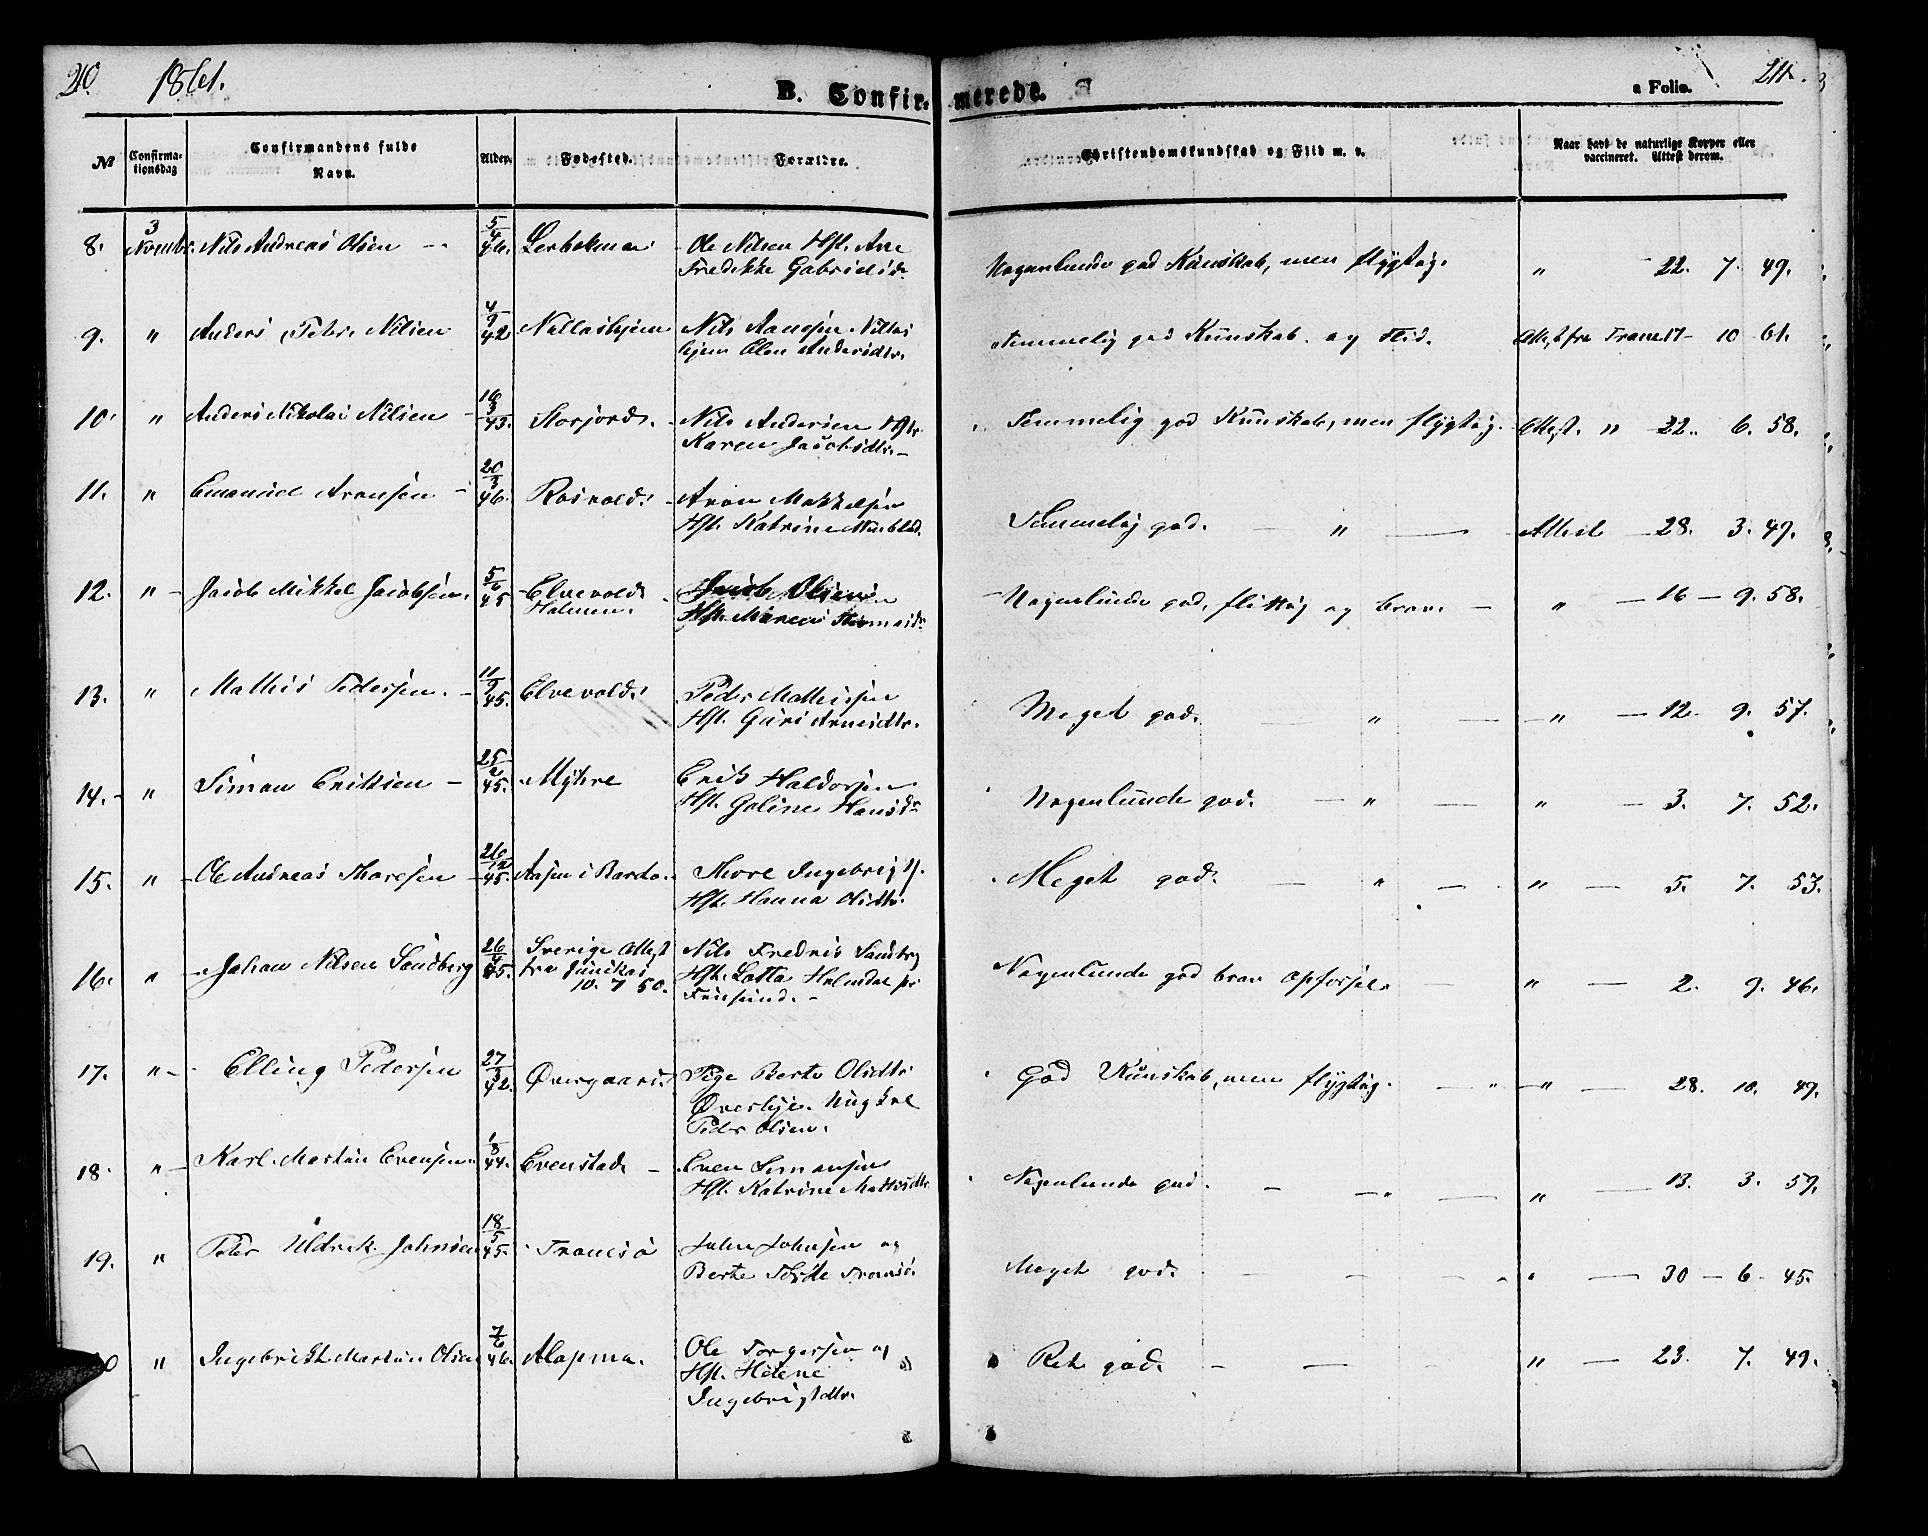 210 1861. B. Confir- merede. a Folio. 211.
№ Confirma-tionsdag Confirmandens fulde Navn. Alder. Fødested. Forældre. Christendomskundskab og Flid m. v. Naar havt de naturlige Kopper eller vaccineret. Attest derom.
8. 3 Novembr. Nils Andreas Olsen 5/4 46. Ole Nilsen Hst. Ane
Fredrikke Gabrielsdr. Nogenlunde god Kunskab, men flygtig. " 22. 7. 49.
9. " Anders Peter Nilsen 4/9 42 Nils
Olen Andersdtr. Temmelig god Kunskab og Flid. Attest fra 17- 10 61.
10. " Anders Nikolai Nilsen 43. Storjord. Nils Andersen Hst.
Karen Jacobsdtr. Temmelig god Kunskab, men flygtig. Attest. " 22. 6. 58.
11. " Emanuel Aronsen 20/3 46. Rosvold. Aron Mikkelsen
Hst. Katrine Temmelig god. " Attest 28. 3. 49.
12. " Jacob Mikkel Jacobsen. 5/6 45 Elvevold Jacob Olsen
Holmen. Hst. Maren Nogenlunde god, flittig og brav. " 16 - 9. 58.
13. " Mathis Pedersen. 11/9 45. Elvevold. Peder Mathissen
Hst. Guri Arnesdtr. Meget god. " " 12. 9. 57.
14. " Simon Eriksen 25/2 45. Myhre Erik Haldorsen
Hst. Goline Hansdr Nogenlunde god. " " 3. 7. 52.
15. " Ole Andreas Thoresen 26/12 45. Aasen i Bardo. Thore Ingebrigts.
Hst. Hanna Olsdtr. Meget god. " " 5. 7. 53.
16. " Johan Nilsen Sandberg 26/4 45. Sverige Attest Nils Fredrik Sandberg
fra Junikas Hst. Lotta
10. 7 50. Nogenlunde god brav opførsel. " 2. 9. 46.
17. " Elling Pedersen 27/3 42. Øvergaard. Pige Berte Olsdtr
Øverbye. Ungkrl
Peder Olsen. God Kunskab, men flygtig. " " 28. 10. 49.
18. " Karl Martin Evensen 1/8 44. Evenstad Even Simonsen
Hst. Katrine Mathisdtr. Nogenlunde god. " " 13. 3. 59.
19. " Peter Uldrik Johnsen 18/5 45. Tromsø John Johnsen og
Berte Tromsø. Meget god. " " 30 - 6 - 45.
20 " Ingebrikt Martin Olsen 7/6 46. Alapmo. Ole Torgersen og
Hst. Helene
Ingebrigtsdtr. Ret god. " 23. 7. 49.